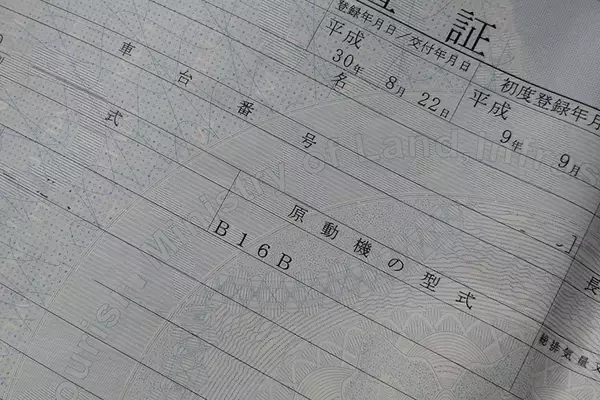 証
登録年月日／交付年月日
初度登録年月
平成
30年 8月 22日
平成
9年 9月
名
車台番号
式
Ministry of Land, Infras
ouris
原動機の型式
B16B
長
総排気量又